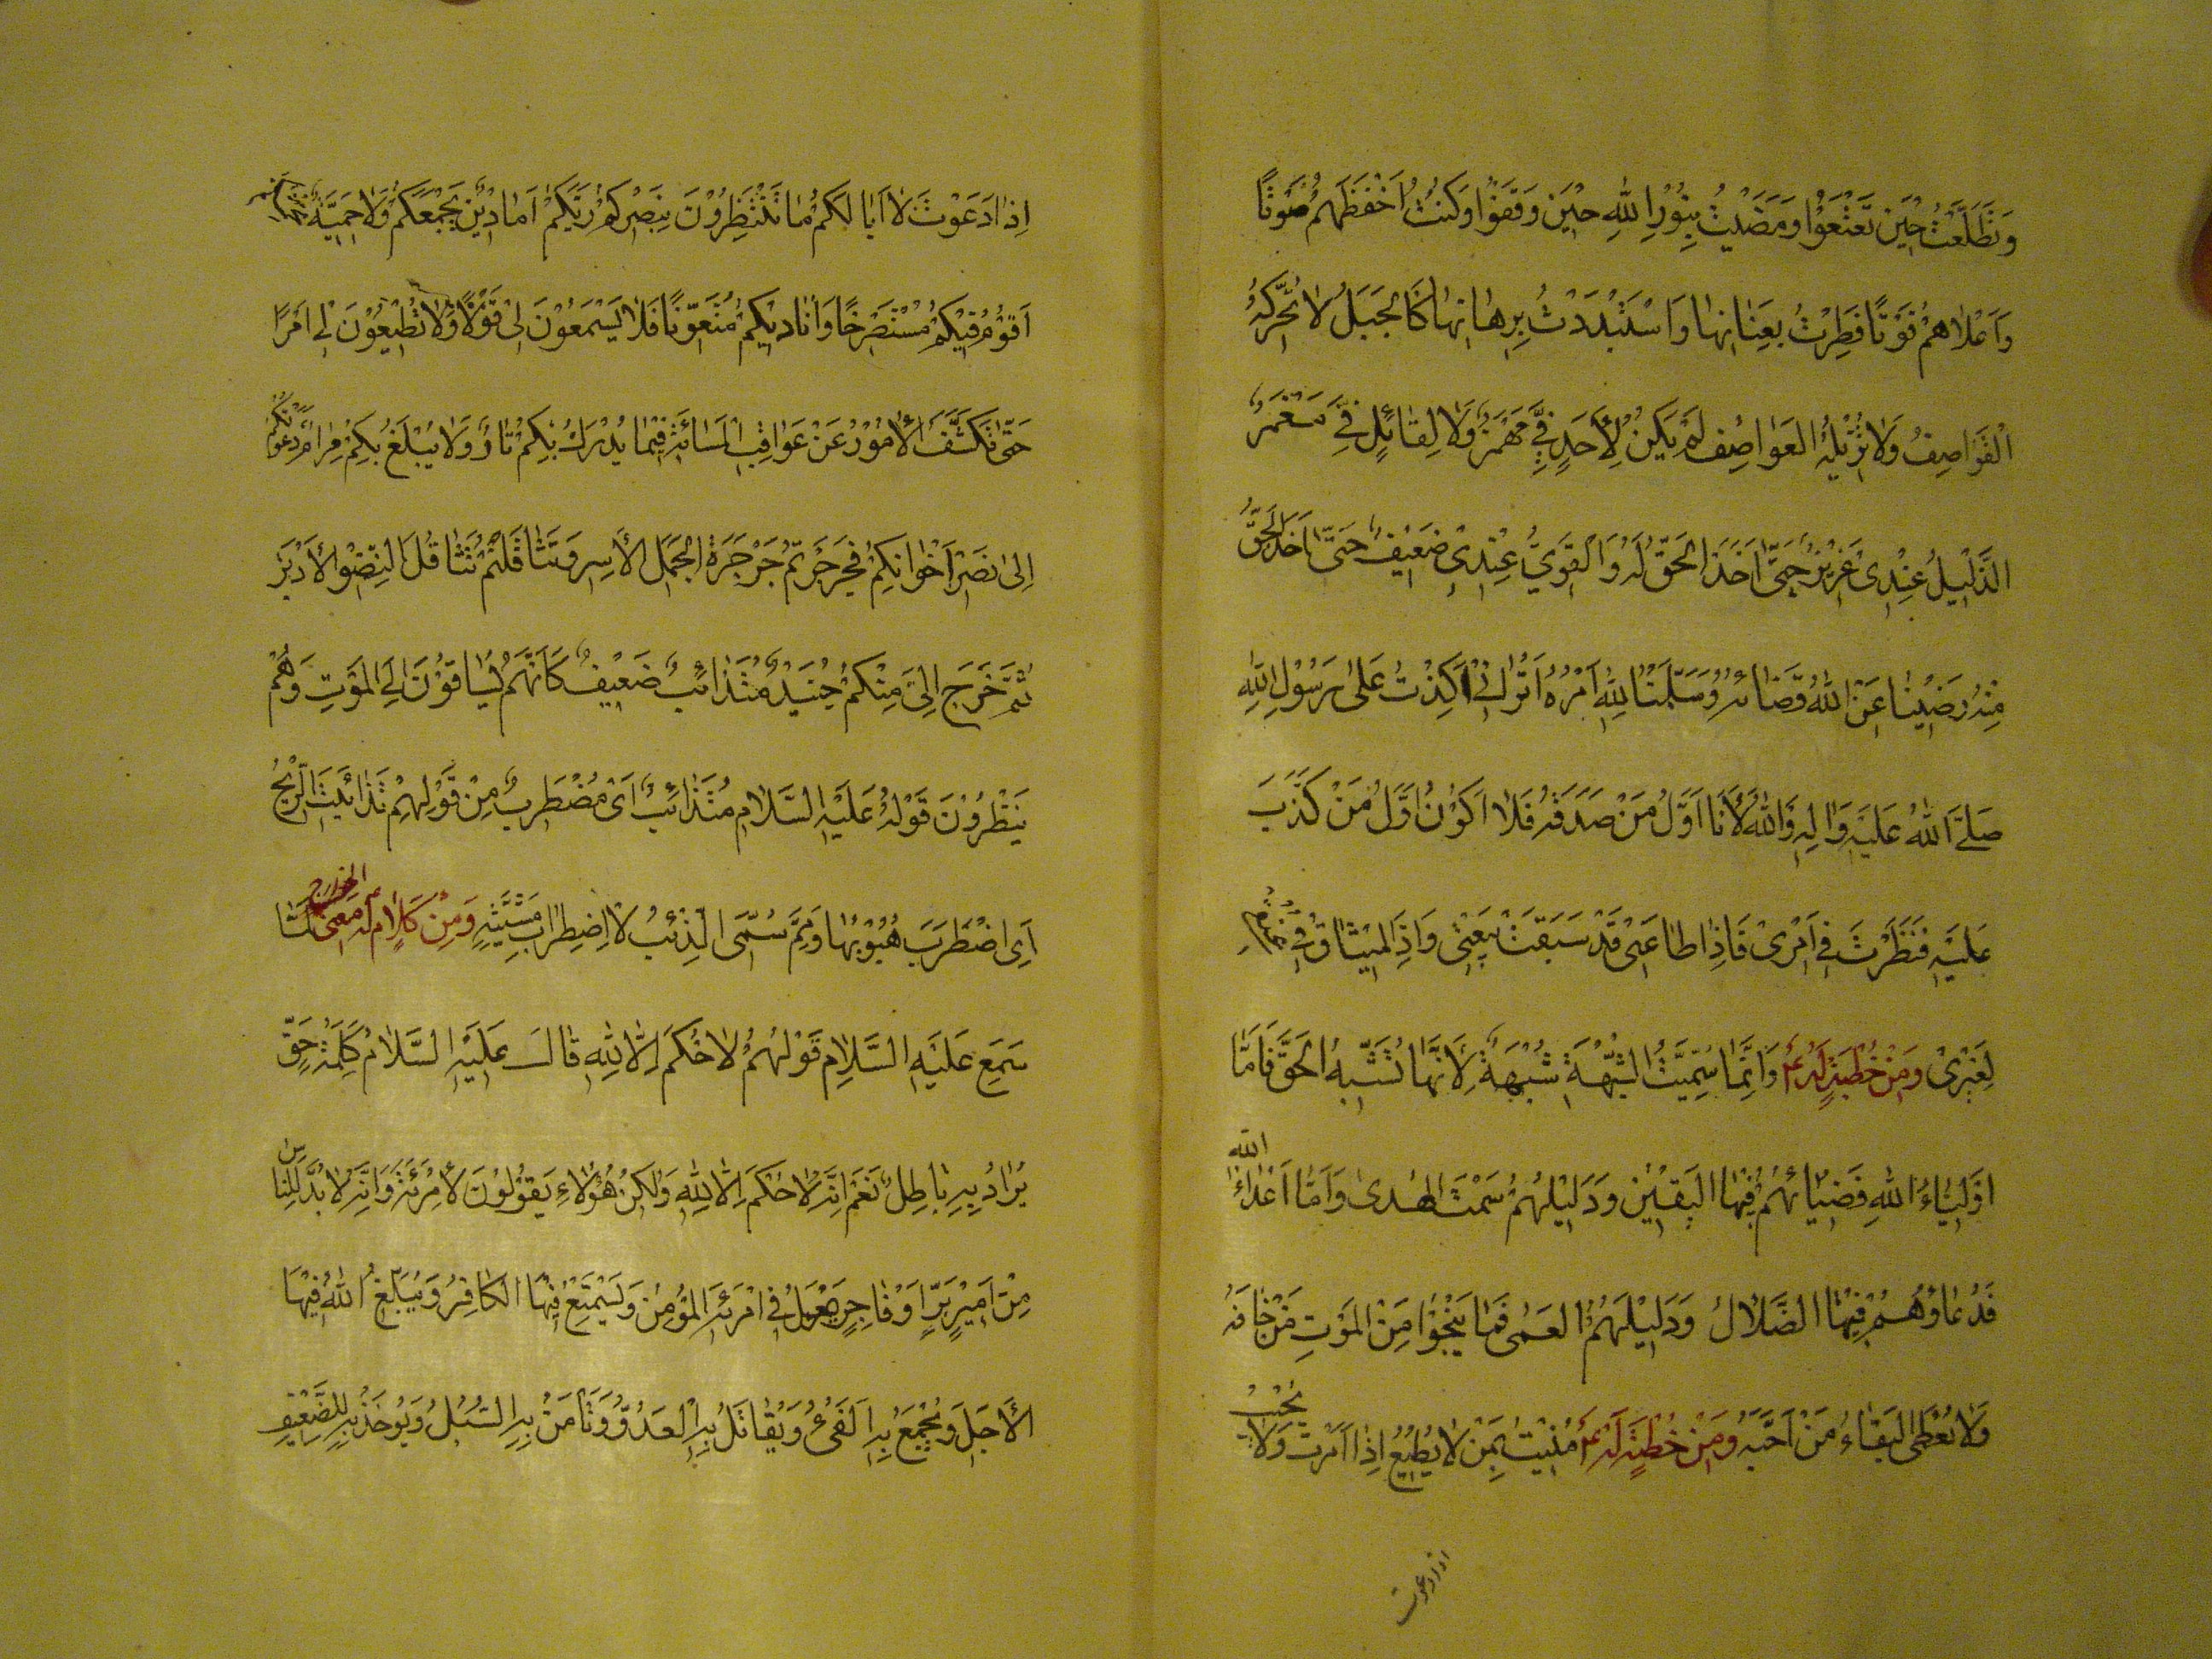 وَتَطَلَّعْتُ حِيْنَ تَعْتَعُوْا وَمَضَيْتُ بِنُوْرِ اللهِ حِيْنَ وَقَفُوْا وَكُنْتُ اَخْفَظَهُمْ صَوْتًا
وَاَعْلاهُمْ فَوْتًا فَطِرْتُ بِعِنَانِهَا وَاسْتَبْدَدْتُ بِرِهَانِهَا كَالجَبَلِ لا تُحَرِّكُهُ
الْقَوَاصِفُ وَلا تُزِيْلُهُ العَوَاصِفُ لَمْ يَكُنْ لِأَحَدٍ فِيَّ مَهْمَزٌ وَلا لِقَائِلٍ فِيَّ مَغْمَزٌ
الذَّلِيْلُ عِنْدِى عَزِيْزٌ حَتّٰى اٰخُذَ الحَقَّ لَهُ وَالْقَوِيُّ عِنْدِىْ ضَعِيْفٌ حَتّٰى اٰخُذَ الحَقَّ
مِنْهُ رَضِيْنَا عَنِ اللهِ قَضَائَهُ وَسَلَّمْنَا لِلهِ اَمْرَهُ اَتَرَانِىْ اَكْذِبُ عَلىٰ رَسُوْلِ اللهِ
صَلَّى اللهُ عَلَيْهِ وَاٰلِهِ وَاللهِ لَأَنَا اَوَّلُ مَنْ صَدَّقَهُ فَلا اَكُوْنُ اَوَّلَ مَنْ كَذَّبَ
عَلَيْهِ فَنَظَرْتُ فِى اَمْرِىْ فَاِذَا طَاعَتِى قَدْ سَبَقَتْ بَيْعَتِى وَاِذَا الْمِيْثَاقُ فِى عُنُقِى
لِغَيْرِىْ وَمِنْ خُطْبَةٍ لَهُ ع وَاِنَّمَا سُمِّيَتِ الشُّبْهَةُ شُبْهَةً لِأَنَّهَا تُشْبِهُ الحَقَّ فَاَمَّا
اَوْلِيَاءُ اللهِ فَضِيَائُهُمْ فِيْهَا الْيَقِيْنُ وَدَلِيْلُهُمْ سَمْتُ الهُدىٰ وَاَمَّا اَعْدَاءُ الله
فَدُعَاؤُهُمْ فِيْهَا الضَّلالُ وَدَلِيْلُهُمُ العَمٰى فَمَا يَنْجُوْا مِنَ الْمَوْتِ مَنْ خَافَهُ
وَلا يُعْطَى الْبَقَاءَ مَنْ اَحَبَّهُ وَمِنْ خُطْبَةٍ لَهُ ع مُنِيْتُ بِمَنْ لا يُطِيْعُ اِذَا اَمَرْتُ وَلا يُجِيْبُ
اذا دعوت
اِذَا دَعَوْتُ لا اَبَا لَكُمْ مَا تَنْتَظِرُوْنَ بِنَصْرِكُمْ رَبَّكُمْ اَمَا دِيْنٌ يَجْمَعُكُمْ وَلا حَمِيَّةٌ تُحْمِشُكُمْ
اَقُوْمُ فِيْكُمْ مُسْتَصْرِخًا وَاُنَادِيْكُمْ مُتَغَوِّثًا فَلا تَسْمَعُوْنَ لِى قَوْلًا وَلا تُطِيْعُوْنَ لِى اَمْرًا
حَتّٰى تَكَشَّفَ الأُمُوْرُ عَنْ عَوَاقِبِ الْمَسَائَةِ فَمَا يُدْرَكُ بِكُمْ ثَارٌ وَلا يُبْلَغُ بِكُمْ مَرَامٌ دَعَوْتُكُمْ
اِلىٰ نَصْرِ اَخْوَانِكُمْ فَجَرْجَرْتُمْ جَرْجَرَةَ الجَمَلِ الأَسَرِّ وَتَثَاقَلْتُمْ تَثَاقُلَ النِّضْوِ الأَدْبَرِ
ثُمَّ خَرَجَ اِلَىَّ مِنْكُمْ جُنَيْدٌ مُتَذَائِبٌ ضَعِيْفٌ كَاَنَّهُمْ يُسَاقُوْنَ اِلَى الْمَوْتِ وَهُمْ
يَنْظُرُوْنَ قَوْلُهُ عَلَيْهِ السَّلامِ مُتَذَائِبٌ اَىْ مُضْطَرِبٌ مِنْ قَوْلِهِمْ تَذَائَبَتِ الرِّيْحُ
اَىِ اضْطَرَبَ هُبُوْبُهَا وَمِمَّ سُمِّىَ الذِّئْبُ لِاِضْطِرَابِ مَشْيَتِهِ وَمِنْ كَلامٍ لَهُ ع فى معنى الخوارج لَمَّا
سَمِعَ عَلَيْهِ السَّلامِ قَوْلَهُمْ لا حُكْمَ اِلَّا لِلهِ قَالَ عَلَيْهِ السَّلامُ كَلِمَةُ حَقٍّ
يُرَادُ بِهِ بَاطِلٌ نَعَمْ اِنَّهُ لا حُكْمَ اِلَّا لِلهِ وَلٰكِنْ هٰؤُلاءِ يَقُوْلُوْنَ لا اِمْرَئَةَ وَاِنَّهُ لا بُدَّ لِلنَّاسِ
مِنْ اَمِيْرٍ بَرٍّ اَوْ فَاجِرٍ يَعْمَلُ فِى اِمْرَئَتِهِ الْمُؤْمِنُ وَيَسْتَمْتِعُ فِيْهَا الكَافِرُ وَيُبَلِّغُ اللهُ فِيْهَا
الأَجَلَ وَيُجْمَعُ بِهِ الْفَىْءُ وَيُقَاتَلُ بِهِ الْعَدُوُّ وَتَأْمَنُ بِهِ السُّبُلُ وَيُؤْخَذُ بِهِ لِلضَّعِيْفِ